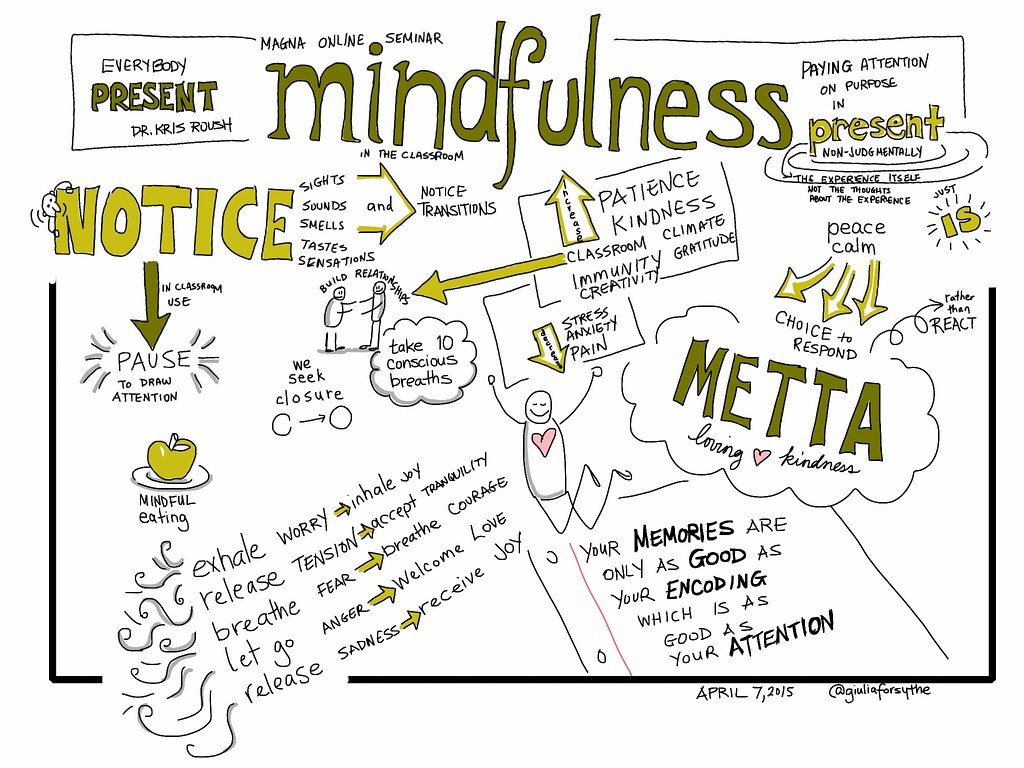 MAGNA ONLINE SEMINAR
mindfulness
IN THE CLASSROOM
EVERYBODY
PRESENT
DR. KRIS ROUSH
PAYING ATTENTION
ON PURPOSE
IN
present
NON-JUDGMENTALLY
THE EXPERIENCE ITSELF
NOT THE THOUGHTS
ABOUT THE EXPERIENCE
JUST
IS
NOTICE
SIGHTS
SOUNDS
SMELLS
TASTES
SENSATIONS
and
NOTICE
TRANSITIONS
INCREASE
PATIENCE
KINDNESS
CLASSROOM CLIMATE
IMMUNITY GRATITUDE
CREATIVITY
BUILD RELATIONSHIPS
peace
calm
CHOICE to
RESPOND
rather
than
REACT
IN CLASSROOM
USE
PAUSE
TO DRAW
ATTENTION
STRESS
ANXIETY
PAIN
take 10
conscious
breaths
we
seek
closure
METTA
loving kindness
MINDFUL
eating
exhale WORRY inhale JOY
release TENSION accept TRANQUILITY
breathe FEAR breathe COURAGE
let go ANGER Welcome LOVE
release SADNESS receive JOY
YOUR MEMORIES ARE
ONLY AS GOOD AS
YOUR ENCODING
WHICH IS AS
GOOD AS
YOUR ATTENTION
APRIL 7, 2015 @giuliaforsythe